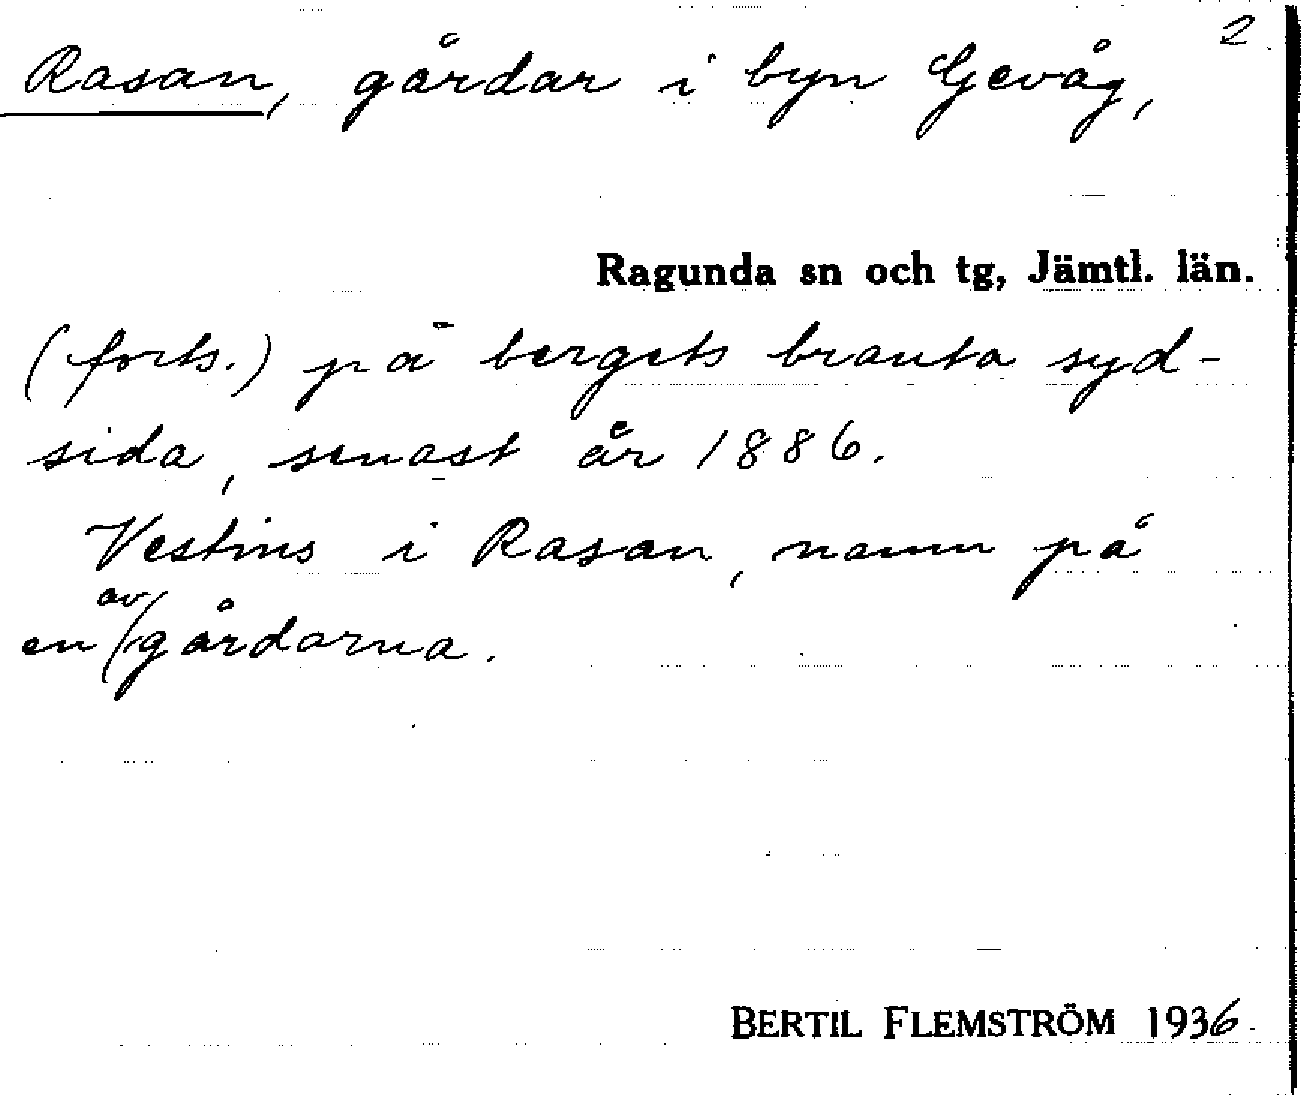 2
Rasan, gårdar i byn Gevåg,
Ragunda sn och tg, Jämtl. län.
(forts.) på bergets branta syd-
sida, senast år 1886.
Vestins i Rasan, namn på
en av gårdarna.
BERTIL FLEMSTRÖM 1936.